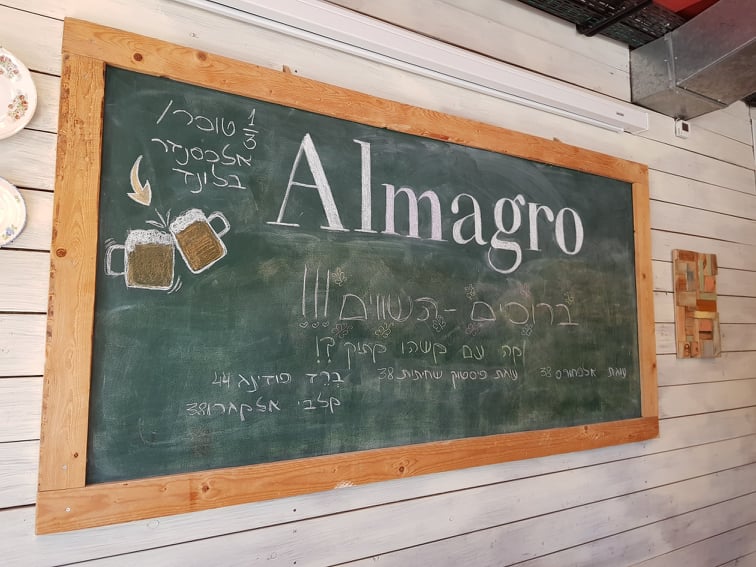 1/3 טוברג/
אלכסנדר
בלונד
Almagro
ברוכים - השווים!!!
מה עם משהו מתוק?!
עוגת אלפחורס 38 עוגת פיסטוק שחיתות 38 ברד פודינג 44
מלבי אלמגרו 38